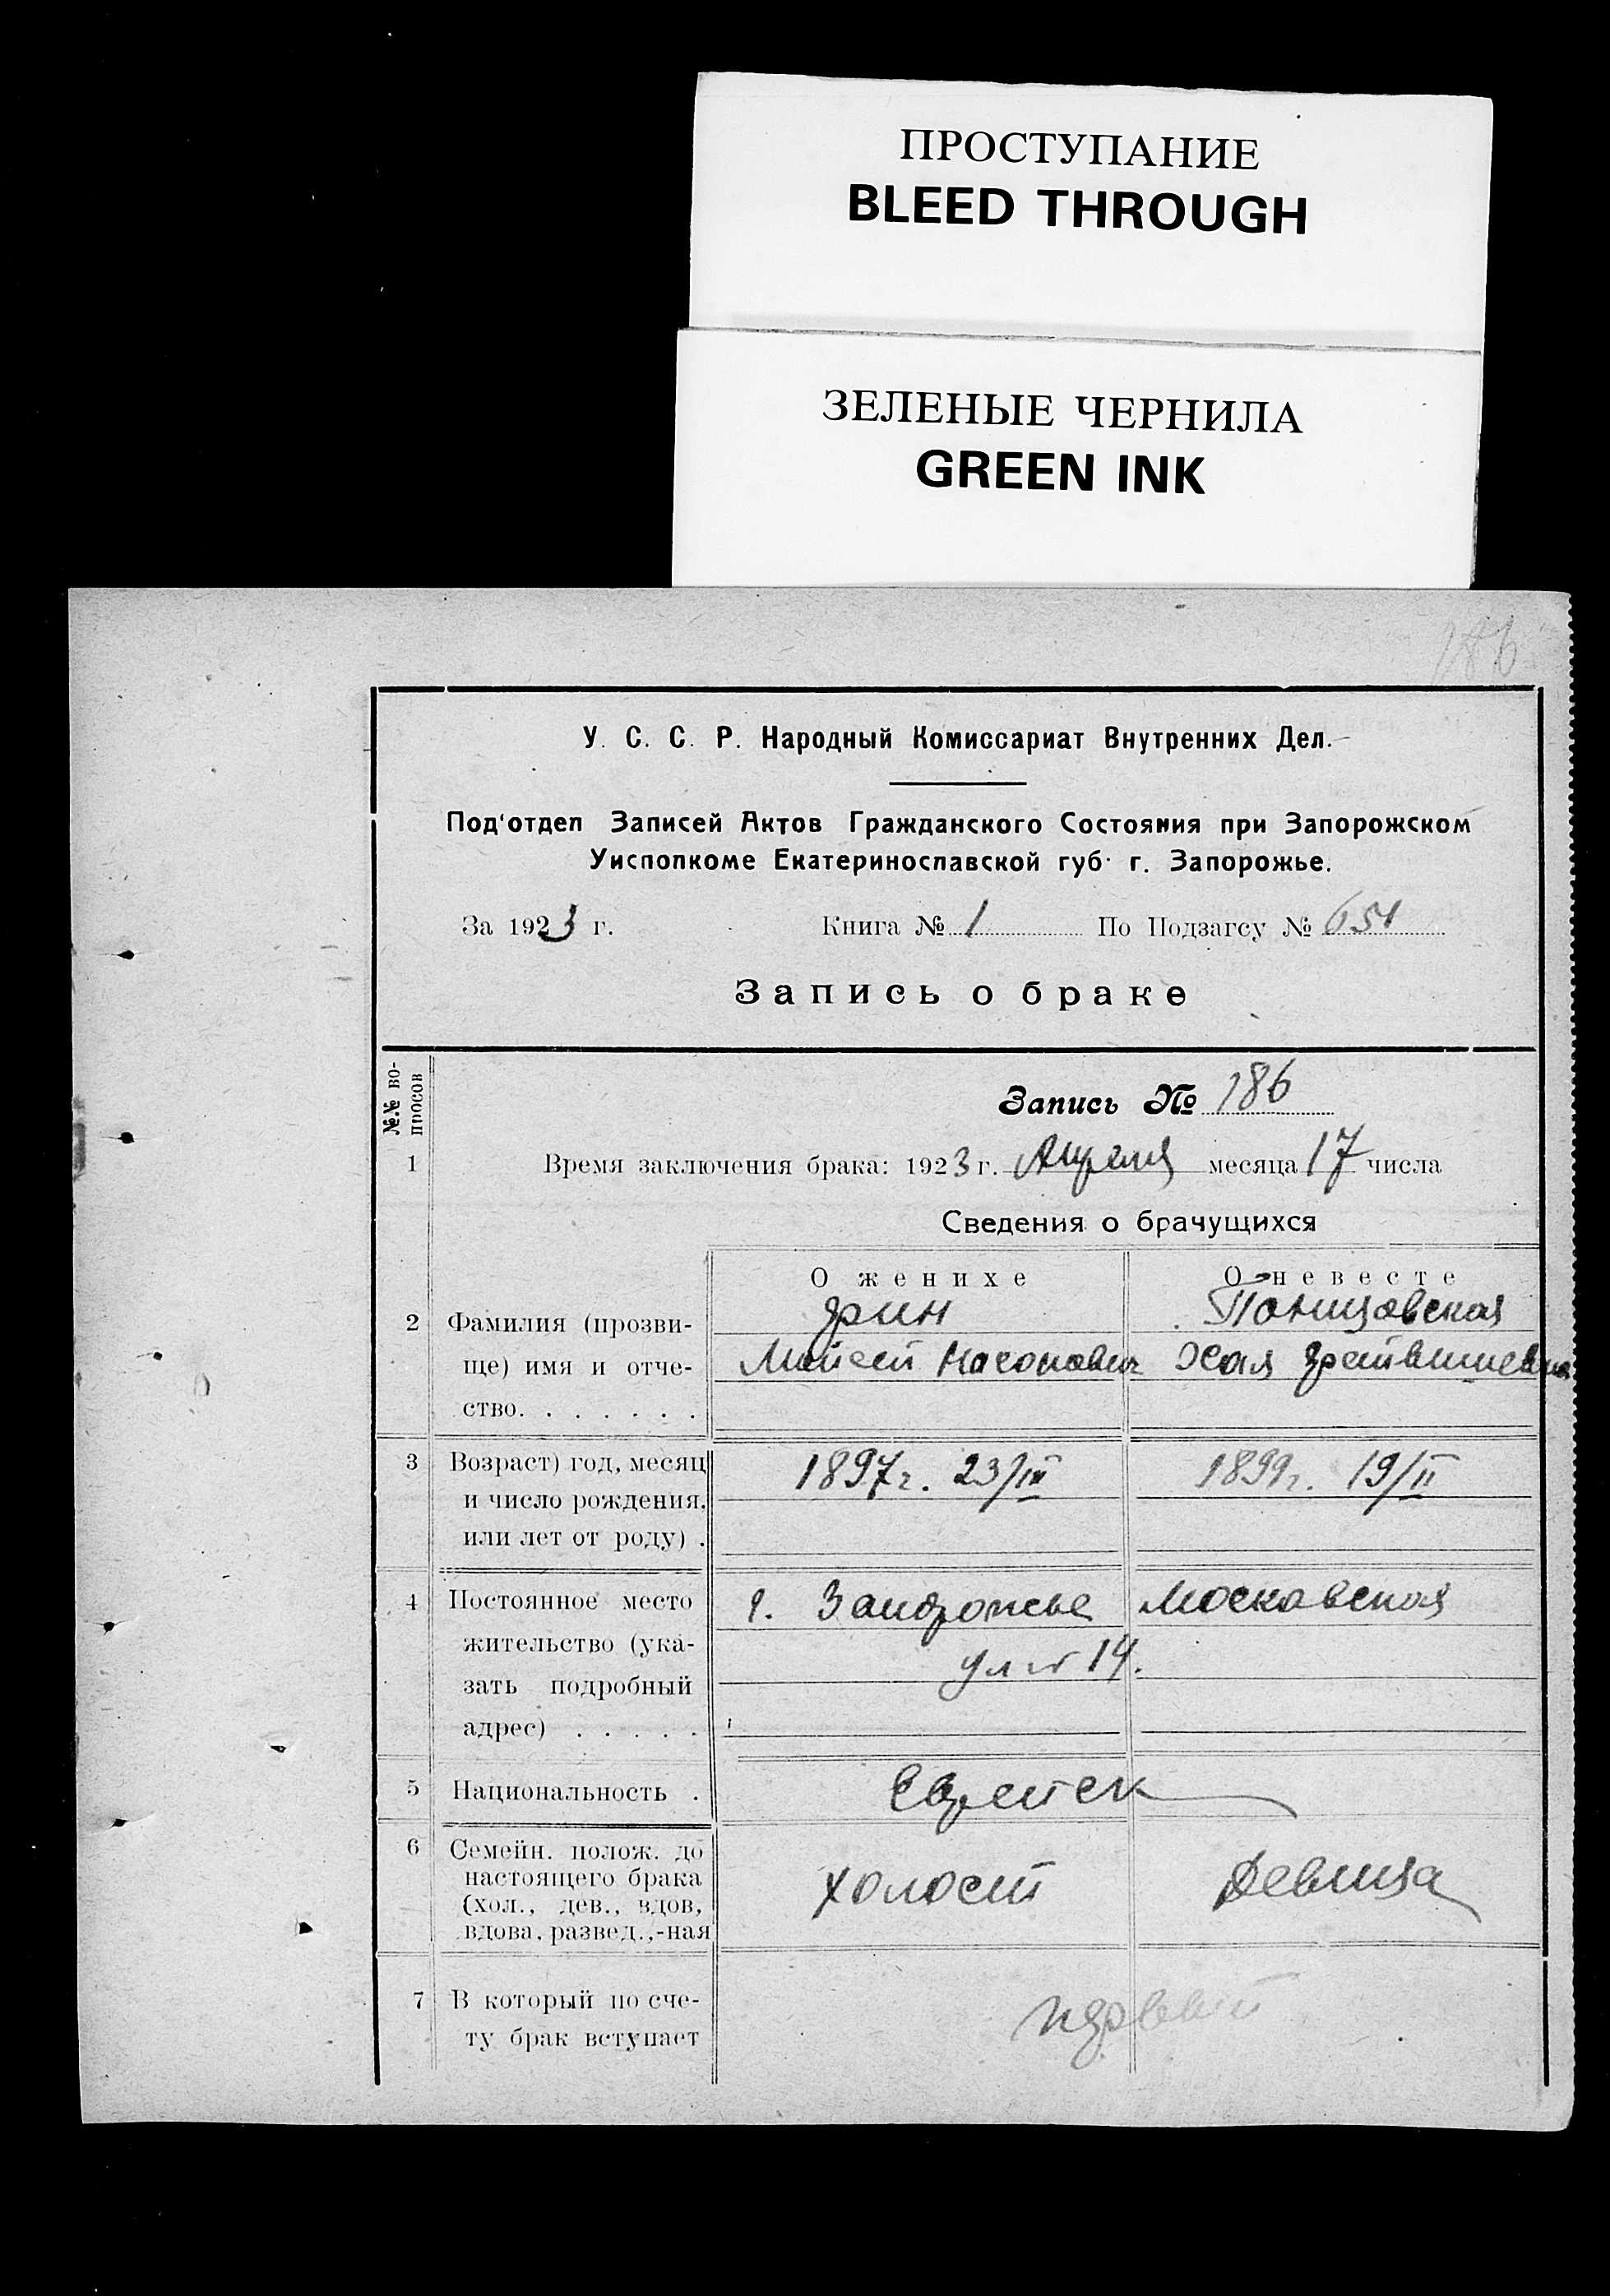 ПРОСТУПАНИЕ
BLEED THROUGH
ЗЕЛЕНЫЕ ЧЕРНИЛА
GREEN INK
186
У. С. С. Р. Народный Комиссариат Внутренних Дел.
Под'отдел Записей Актов Гражданского Состояния при Запорожском
Уисполкоме Екатеринославской губ. г. Запорожье.
За 1923 г. Книга № 1 По Подзагсу № 651
Запись о браке
№№ во-
просов
Запись № 186
1 Время заключения брака: 1923 г. Апреля месяца 17 числа
Сведения о брачущихся
О женихе О невесте
2 Фамилия (прозви-
ще) имя и отче-
ство. . . . . . .
Мойсей Хая
3 Возраст) год, месяц
и число рождения.
или лет от роду) .
1897 г. 23/III 1899 г. 19/II
4 Постоянное место
жительство (ука-
зать подробный
адрес) . . . . .
г. Запорожье Московская
ул № 14.
5 Национальность .
Еврейск
6 Семейн. полож. до
настоящего брака
(хол., дев., вдов,
вдова, развед.,-ная
холост девица
7 В который по сче-
ту брак вступает
первый